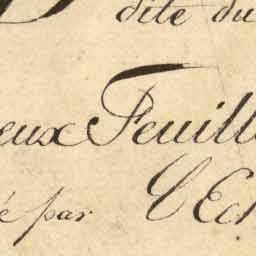 dite du
eux Feuill
é par L'Ec